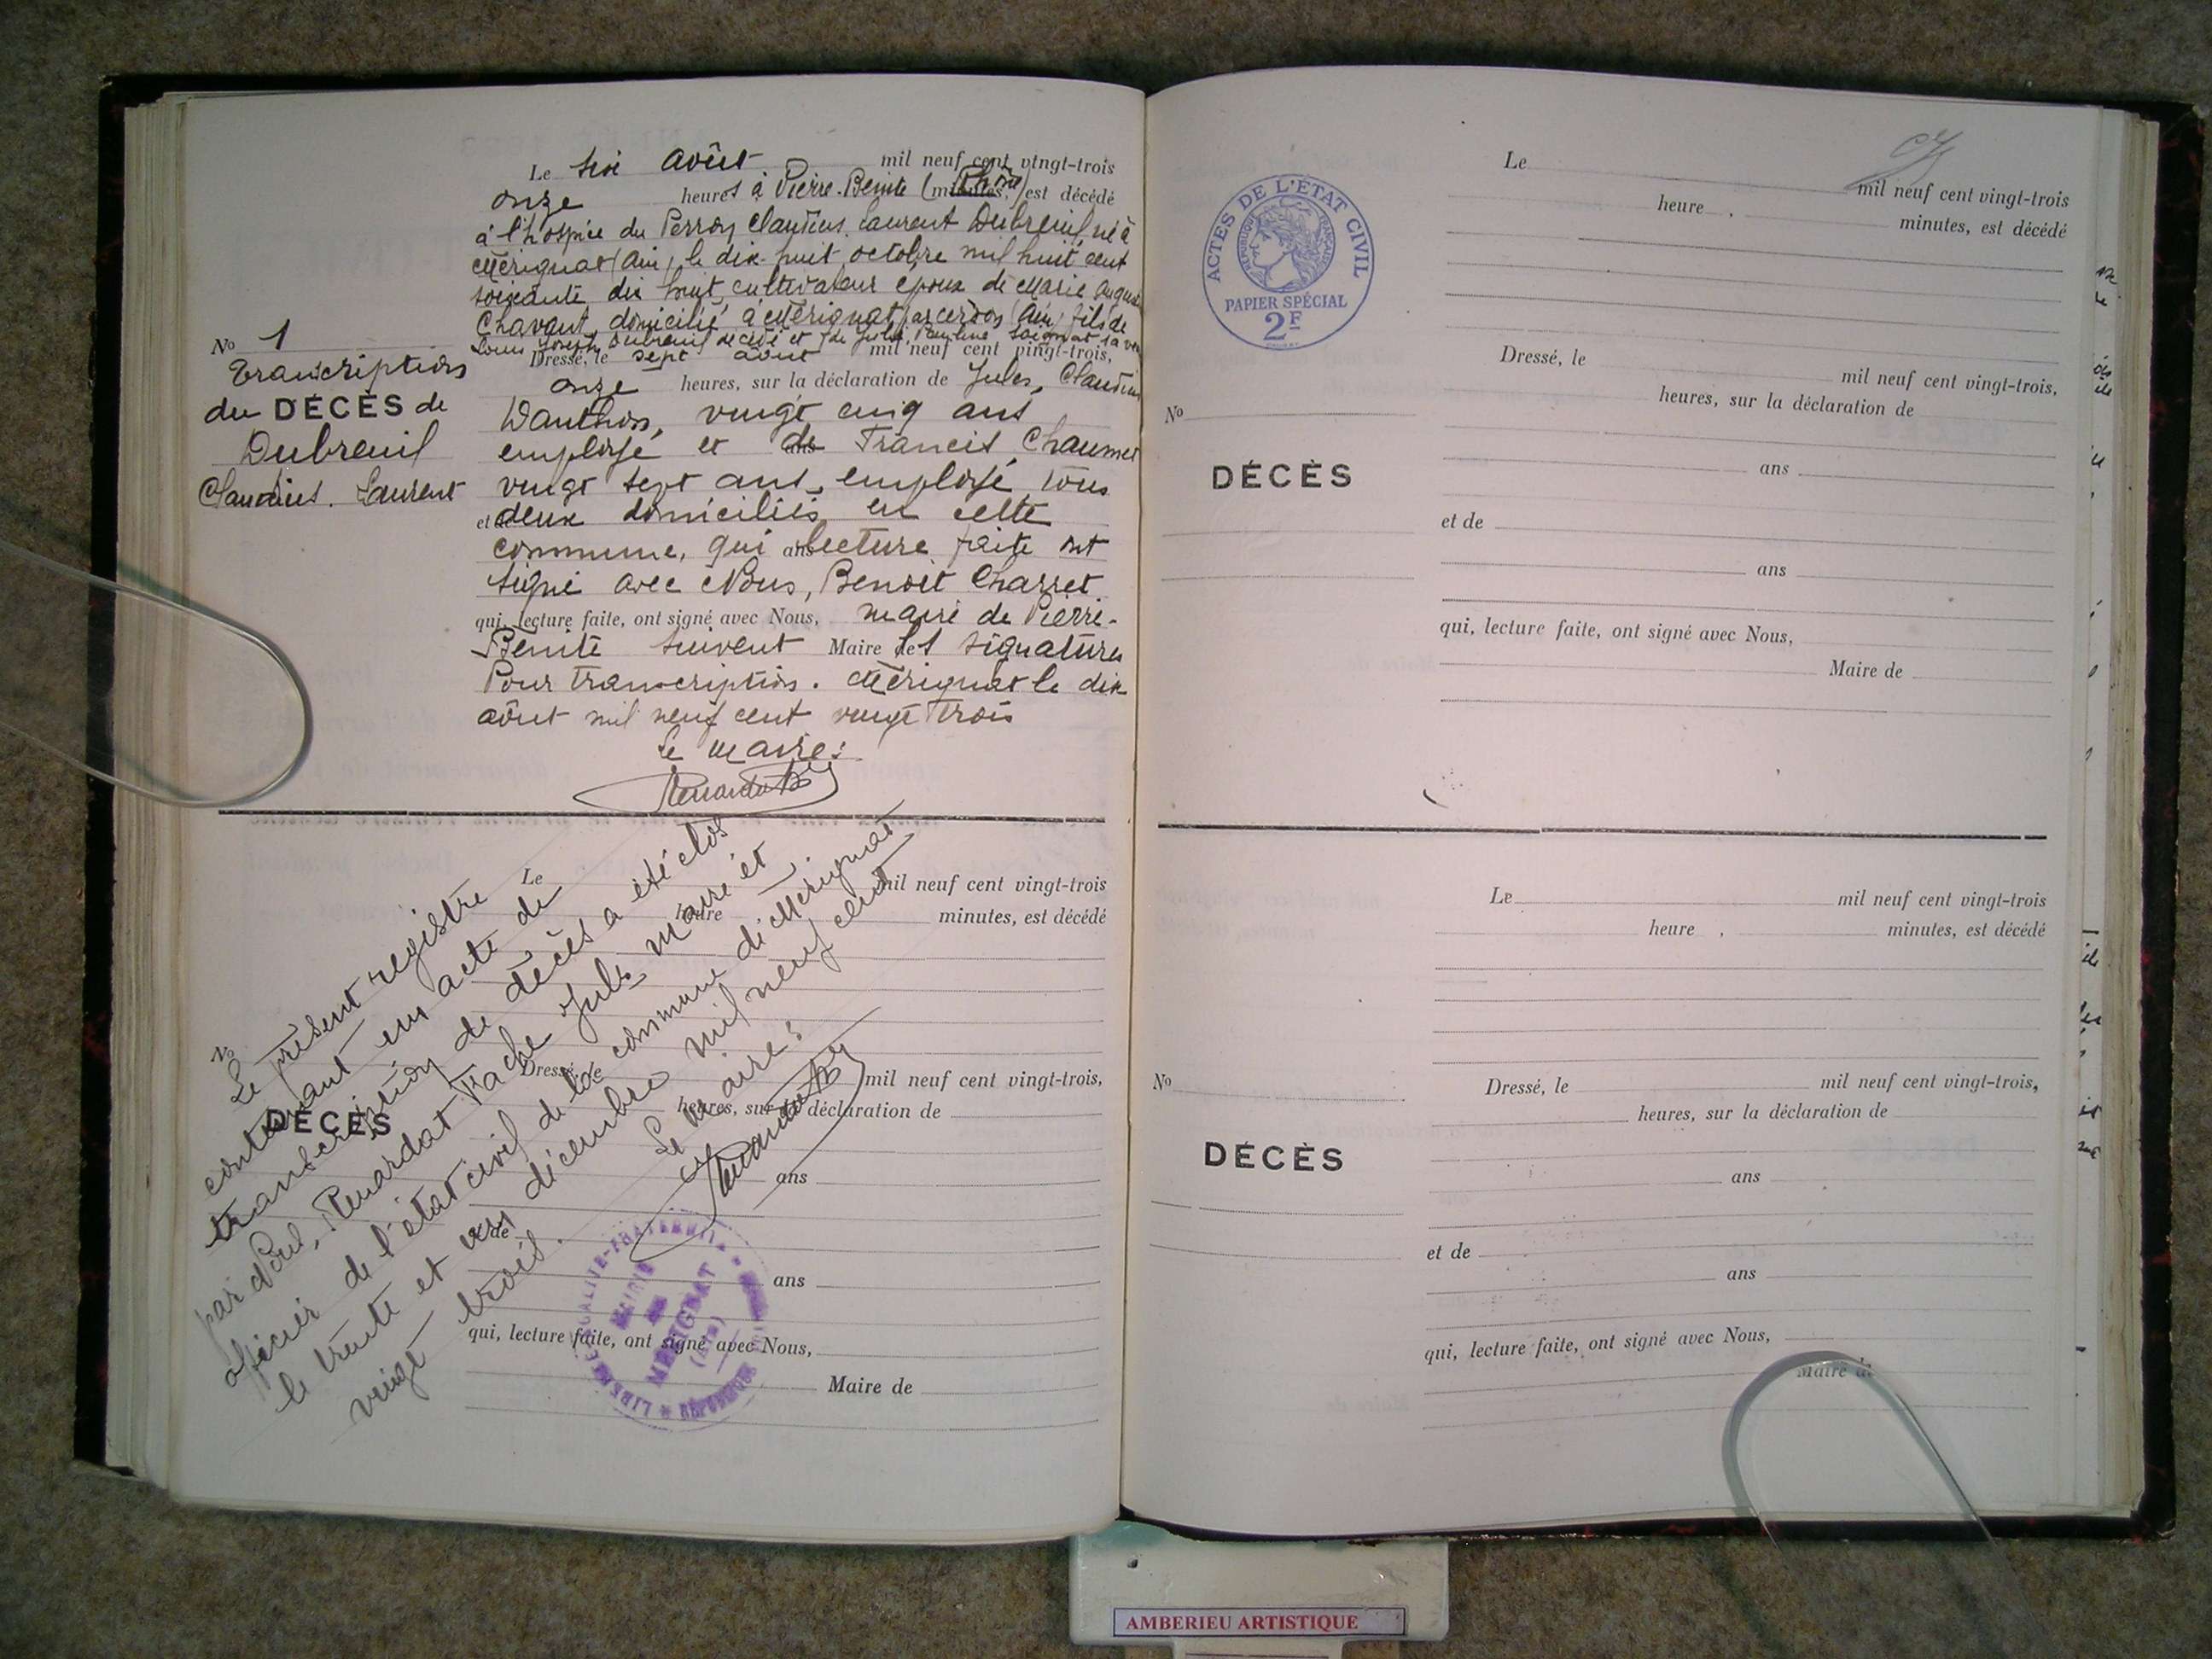 Le six août mil neuf cent vingt-trois
onze heures à Pierre-Bénite (Rhône) est décédé
à l'hospice du Perron Claudius Laurent Dubreuil né à
Mérignat (Ain) le dix-huit octobre mil huit cent
soixante dix huit cultivateur époux de Marie
Chavant, domicilié à Mérignat par Cerdon (Ain) fils de
Louis Joseph Dubreuil décédé et de Julie, Pauline sa
Dressé, le sept août mil neuf cent vingt-trois,
onze heures, sur la déclaration de Jules, Claudius
Wanthos, vingt cinq ans
employé et de Francis Chaumet
vingt sept ans, employé tous
et de deux domiciliés en cette
commune, qui ans lecture faite ont
signé avec Nous, Benoit Charret
qui, lecture faite, ont signé avec Nous, maire de Pierre-
Bénite suivent Maire de les signatures
Pour transcription. Mérignat le dix
août mil neuf cent vingt trois
Le Maire:
No 1
Transcription
du DÉCÈS de
Dubreuil
Claudius. Laurent
Le mil neuf cent vingt-trois
heure , minutes, est décédé
No
DÉCÈS
Dressé, le mil neuf cent vingt-trois,
heures, sur la déclaration de
ans
et de
ans
qui, lecture faite, ont signé avec Nous,
Maire de
Le présent registre
contenant un acte de
transcription de décès a été clos
par Nous, Renardat Fache Jules maire et
officier de l'état civil de la commune de Mérignat
le trente et un décembre mil neuf cent
vingt trois.
Le Maire:
MAIRIE
DE
MERIGNAT
(Ain)
ACTES DE L'ÉTAT CIVIL
RÉPUBLIQUE FRANÇAISE
PAPIER SPÉCIAL
2F
Le mil neuf cent vingt-trois
heure , minutes, est décédé
Dressé, le mil neuf cent vingt-trois,
heures, sur la déclaration de
No
DÉCÈS
ans
et de
ans
qui, lecture faite, ont signé avec Nous,
Maire de
Le mil neuf cent vingt-trois
heure , minutes, est décédé
No
Dressé, le mil neuf cent vingt-trois,
heures, sur la déclaration de
DÉCÈS
ans
et de
ans
qui, lecture faite, ont signé avec Nous,
Maire de
AMBERIEU ARTISTIQUE